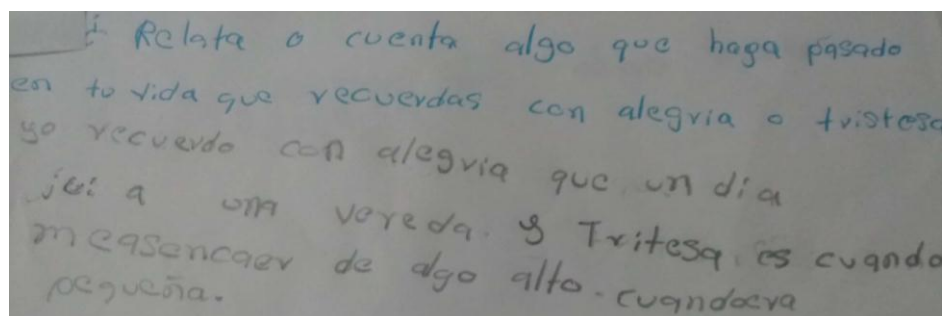 Relata o cuenta algo que haga pasado
en tu vida que recuerdas con alegria o tristesa
yo recuerdo con alegria que un dia
jui a una vereda. y Tritesa es cuando
measencaer de algo alto. cuandoera
pequeña.